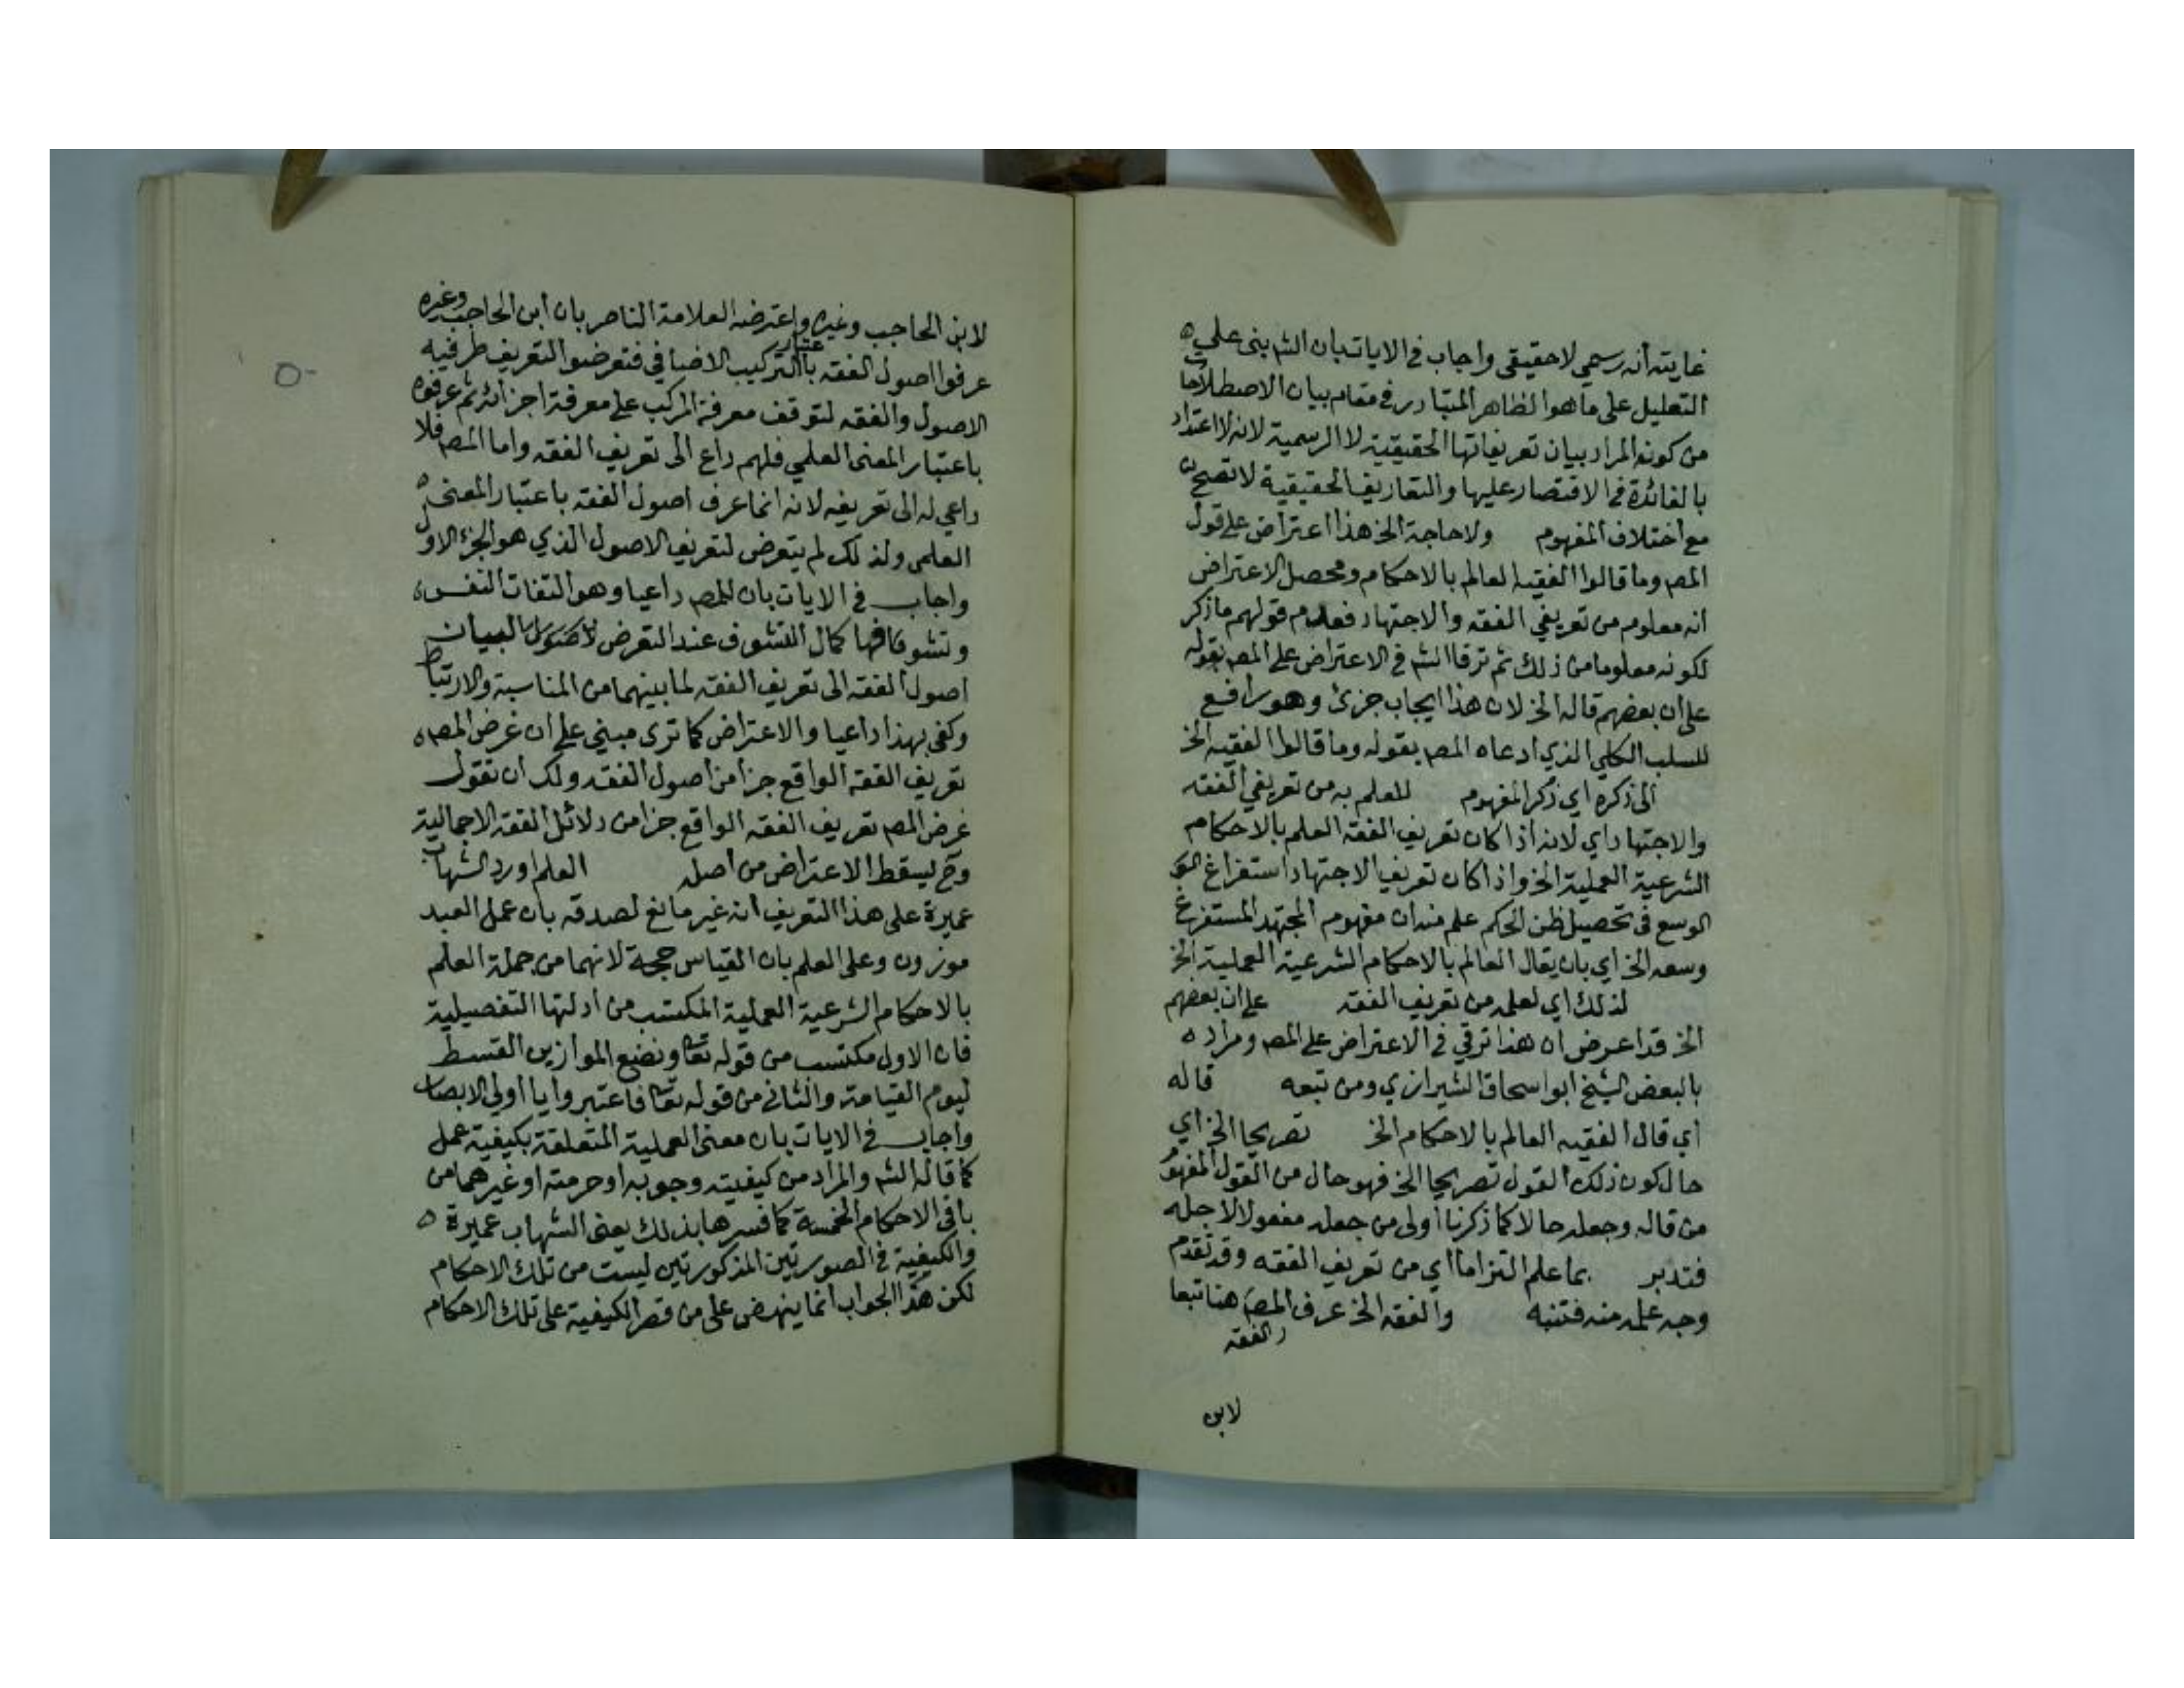 غايته أنه رسمي لا حقيقي واجاب في الايات بان الشم بنى على
التعليل على ما هو الظاهر المتبادر في مقام بيان الاصطلاحات
من كونه المراد بيان تعريفاتها الحقيقية لا الرسمية لانه لا اعتداد
بالفائدة في الاقتصار عليها والتعاريف الحقيقية لا تصح
مع اختلاف المفهوم ولا حاجة الخ هذا اعتراض على قول
المصم وما قالوا الفقيه العالم بالاحكام ومحصل الاعتراض
انه معلوم من تعريفي الفقه والاجتهاد فعدم قولهم ما ذكر
لكونه معلوما من ذلك ثم ترقا الشم في الاعتراض على المصم بقوله
على ان بعضهم قاله الخ لان هذا ايجاب جزئ وهو رافع
للسلب الكلي الذي ادعاه المصم بقوله وما قالوا الفقيه الخ
الى ذكره اي ذكر المفهوم للعلم به من تعريفي الفقه
والاجتهاد اي لانه اذا كان تعريف الفقه العلم بالاحكام
الشرعية العملية الخ واذا كان تعريف الاجتهاد استفراغ
الوسع في تحصيل ظن الحكم علم منه ان مفهوم المجتهد المستفرغ
وسعه الخ اي بان يقال العالم بالاحكام الشرعية العملية الخ
لذلك اي لعلمه من تعريف الفقه على ان بعضهم
الخ قد اعرض ان هذا ترقي في الاعتراض على المصم ومراده
بالبعض الشيخ ابو اسحاق الشيرازي ومن تبعه قاله
أي قال الفقيه العالم بالاحكام الخ تصريحا الخ اي
حال كون ذلك القول تصريحا الخ فهو حال من القول المفهوم
من قاله وجعله حالا كما ذكرنا أولى من جعله مفعولا لاجله
فتدبر بما علم التزاما اي من تعريف الفقه وقد تقدم
وجه علمه منه فتنبه والفقه الخ عرف المصم هنا تبعا
الفقه
لابن
لابن الحاجب وغيره واعترضه العلامة الناصر بان ابن الحاجب وغيره
عرفوا اصول الفقه باعتبار التركيب الاضافي فتعرضوا التعريف طرفيه
الاصول والفقه لتوقف معرفة المركب على معرفة اجزائه ثم عرفوه
باعتبار المعنى العلمي فلهم داع الى تعريف الفقه واما المصم فلا
داعي له الى تعريفه لانه انما عرف اصول الفقه باعتبار المعنى
العلمي ولذلك لم يتعرض لتعريف الاصول الذي هو الجزء الاول
واجاب في الايات بان للمصم داعيا وهو التفات النفس
وتشوفاتها كمال التشوف عند التعرض لبيان
اصول الفقه الى تعريف الفقه لما بينهما من المناسبة والارتباط
وكفى بهذا داعيا والاعتراض كما ترى مبني على ان غرض المصم
تعريف الفقه الواقع جزا من أصول الفقه ولك ان تقول
غرض المصم تعريف الفقه الواقع جزا من دلائل الفقه الاجمالية
وح ليسقط الاعتراض من أصله العلم اورد الشهاب
عميرة على هذا التعريف انه غير مانع لصدقه بان عمل العبد
موزون وعلى العلم بان القياس حجة لانهما من جملة العلم
بالاحكام الشرعية العملية المكتسب من أدلتها التفصيلية
فان الاول مكتسب من قوله تعا ونضع الموازين القسط
ليوم القيامة والثاني من قوله تعا فاعتبروا يا اولي الابصار
واجاب في الايات بان معنى العملية المتعلقة بكيفية عمل
كما قاله الشم والمراد من كيفيته وجوبه او حرمته او غيرهما من
باقي الاحكام الخمسة كما فسرها بذلك يعني الشهاب عميرة
والكيفية في الصورتين المذكورتين ليست من تلك الاحكام
لكن هذا الجواب انما ينهض على من قصر الكيفية على تلك الاحكام